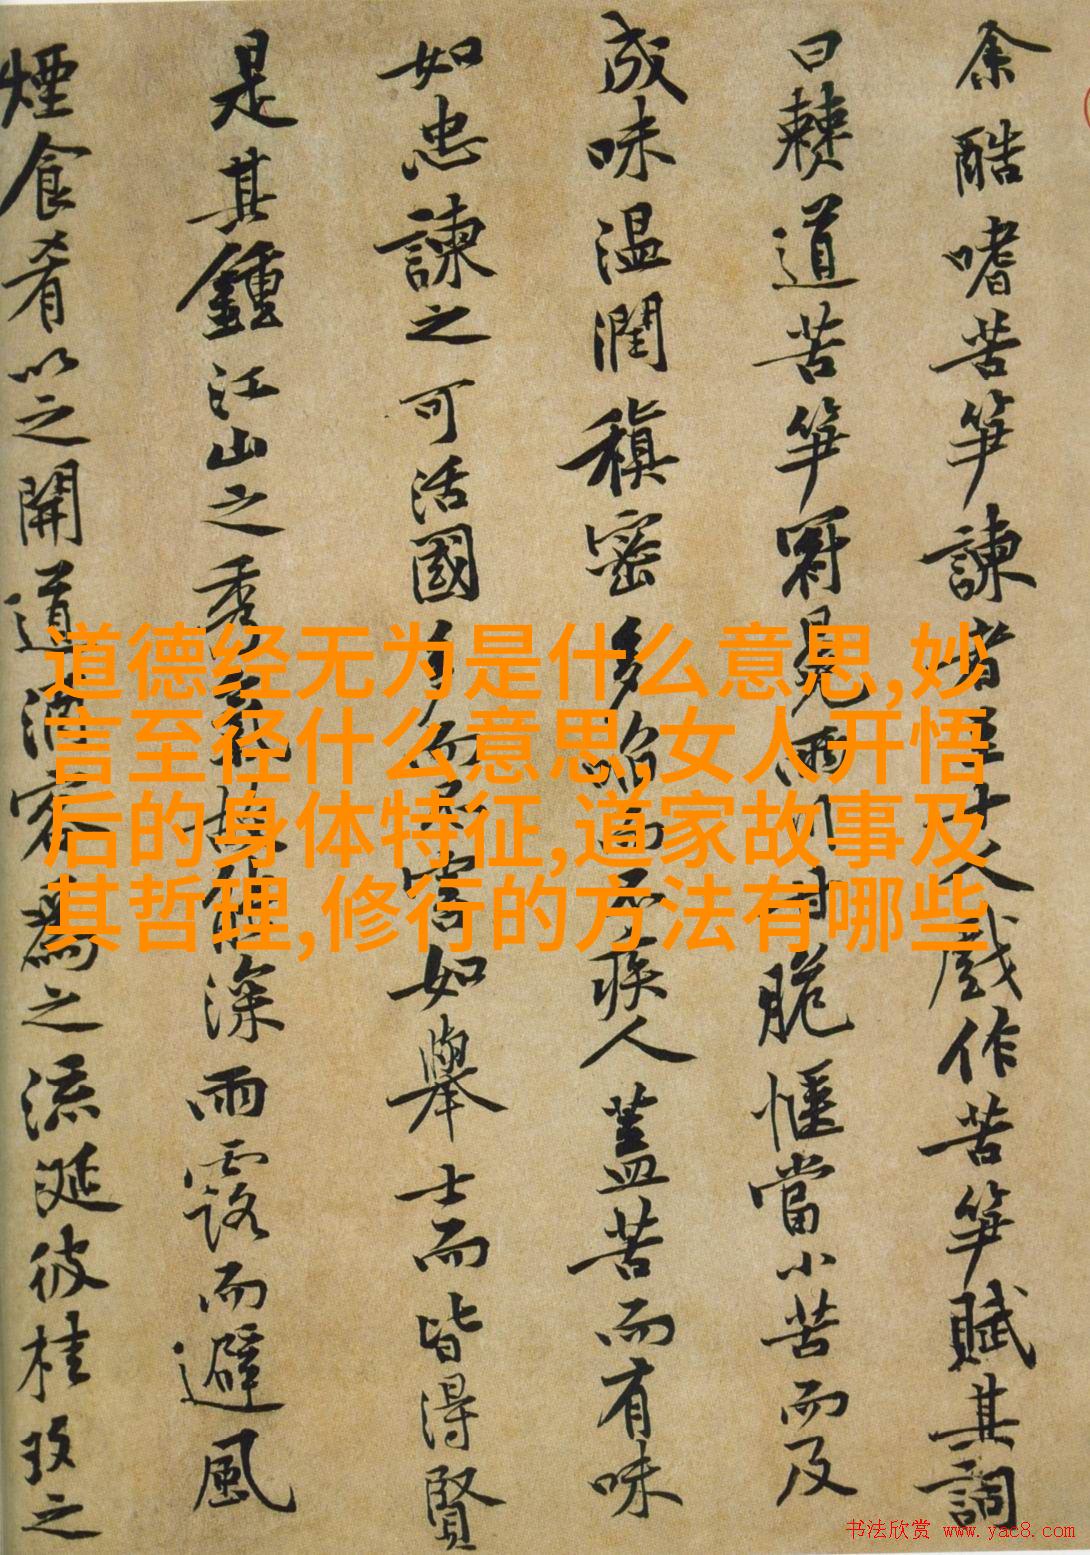 余酷嗜苦笋諫者至十人戲作苦笋賦其詞
曰僰道苦笋冠冕兩川甘脆愜當小苦而及
成味温潤稹密多啗而不疾人蓋苦而有味
如忠諫之可活國多而不害如舉士而皆得賢
是其鍾江山之秀氣故能深雨露而避風
煙食肴以之開道酒客為之流涎彼桂玫之
道德经无为是什么意思,妙
言至径什么意思,女人开悟
后的身体特征,道家故事及
其哲理,修行的方法有哪些
书法欣赏 www.yac8.com